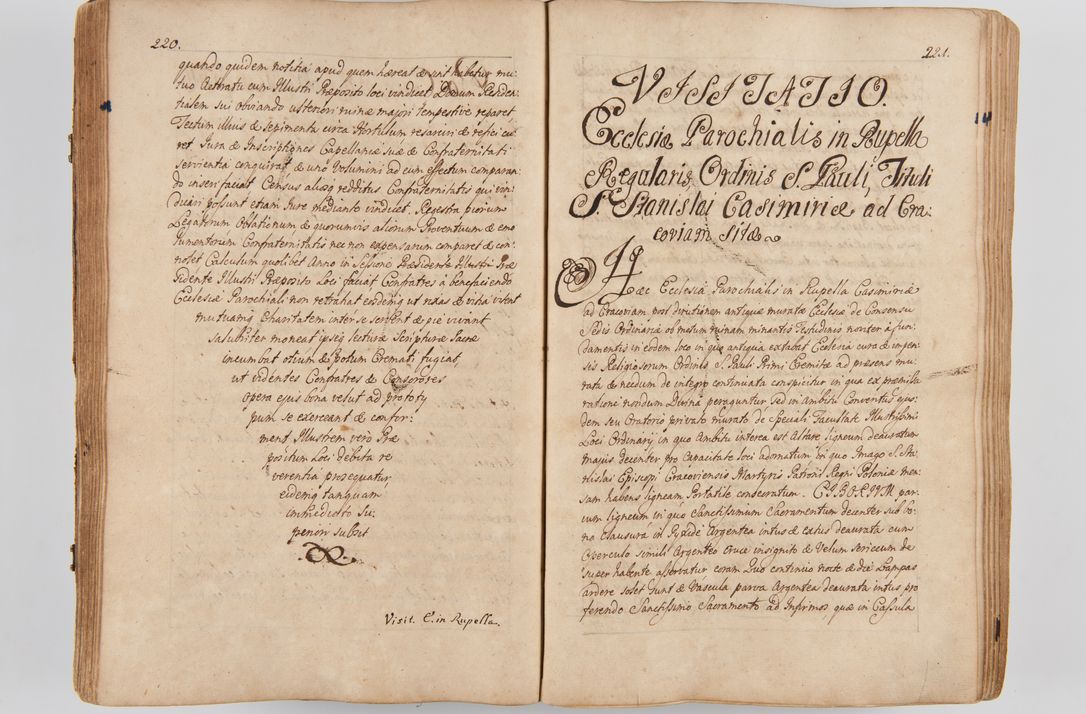 220.
quando quidem notitia apud quem hæreat & sint habetur mu:
tuo Attrati cum Illustri Præposito loci vindicet Domum Residen:
tialem sui obviando ulteriori ruinæ majori tempestive reparet
Tectum illius & sepimenta circa Hortulum resarciri & refici cu:
ret Jura & Inscriptiones Capellaniæ suæ & Confraternitati
servientia conquirat & uno Volumini ad eum effectum comparan:
do inseri faciat Census aliosq redditus Confraternitatis qui vin:
dicari possunt etiam Jure mediante vindicet. Regestra piorum
Legatorum Oblationum & quorumvis aliorum Proventuum & emo
lumentorum Confraternitatis nec non expensarum comparet & con:
notet Calculum quolibet Anno in Sessione Præsidente Illustri Præ
sidente Illustri Præposito Loci faciat Confratres a benefaciendo
Ecclesiæ Parochiali non retrahat eidemq ut vitam
mutuamq Charitatem inter se servent & pie vivant
salubriter moneat ipseq lecturæ Scripturæ Sacræ
incumbat otium & potum Cremati fugiat,
ut videntes Confratres & Consorores
opera ejus bona velut ad prototy
pum se exerceant & confor:
ment Illustrem vero Præ
positum Loci debita re
verentia prosequatur
eidemq tanquam
immediato Su:
periori subsit
Visit. E. in Rupella.
221.
VISITATIO.
Ecclesiæ Parochialis in Rupella
Regularis Ordinis S. Pauli, Tituli
S. Stanislai Casimiriæ ad Cra:
coviam sitæ
Hæc Ecclesia Parochialis in Rupella Casimiriæ
ad Cracoviam post dirutionem antiquæ muratæ Ecclesiæ de Consensu
Sedis Ordinariæ ob malum ruinam minantis Testudinis noviter a fun:
damentis in eodem loco in quo antiqua extabat Ecclesia cura & impen:
sis Religiosorum Ordinis S. Pauli Primi Eremitæ ad præsens mu:
rata & necdum de integro continuata conspicitur in qua ex præmissa
ratione nondum Divina peraguntur sed in Ambitu Conventus ejus:
dem seu Oratorio privato murato de speciali Facultate Illustrissimi
Loci Ordinarij in quo Ambitu interea est Altare ligneum deauratum
majus decenter pro Capacitate loci adornatum in quo Imago S. Sta:
nislai Episcopi Cracoviensis Martyris Patroni Regni Poloniæ men:
sam habens ligneam Portatile consecratum. CIBORIUM par:
vum ligneum in quo Sanctissimum Sacramentum decenter sub bo:
na clausura in Pyxide Argentea intus & extus deaurata cum
Operculo simili Argenteo Cruce insignito & Velum sericeum de
super habente asservatur coram Quo continuo nocte & die Lampas
ardere solet sunt & Vascula parva Argentea deaurata intus pro
ferendo Sanctissimo Sacramento ad Infirmos, quæ in Capsula